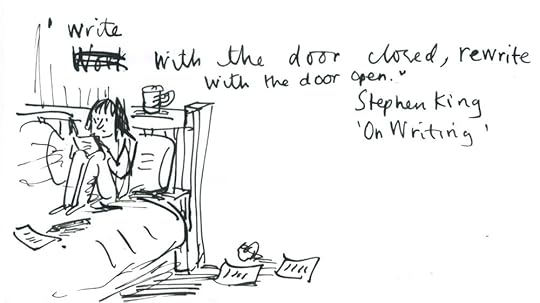 ' write
Work with the door closed, rewrite
with the door open."
Stephen King
'On Writing'